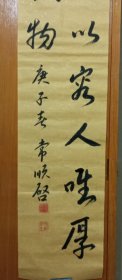 以容人唯厚
物
庚子春常順啓